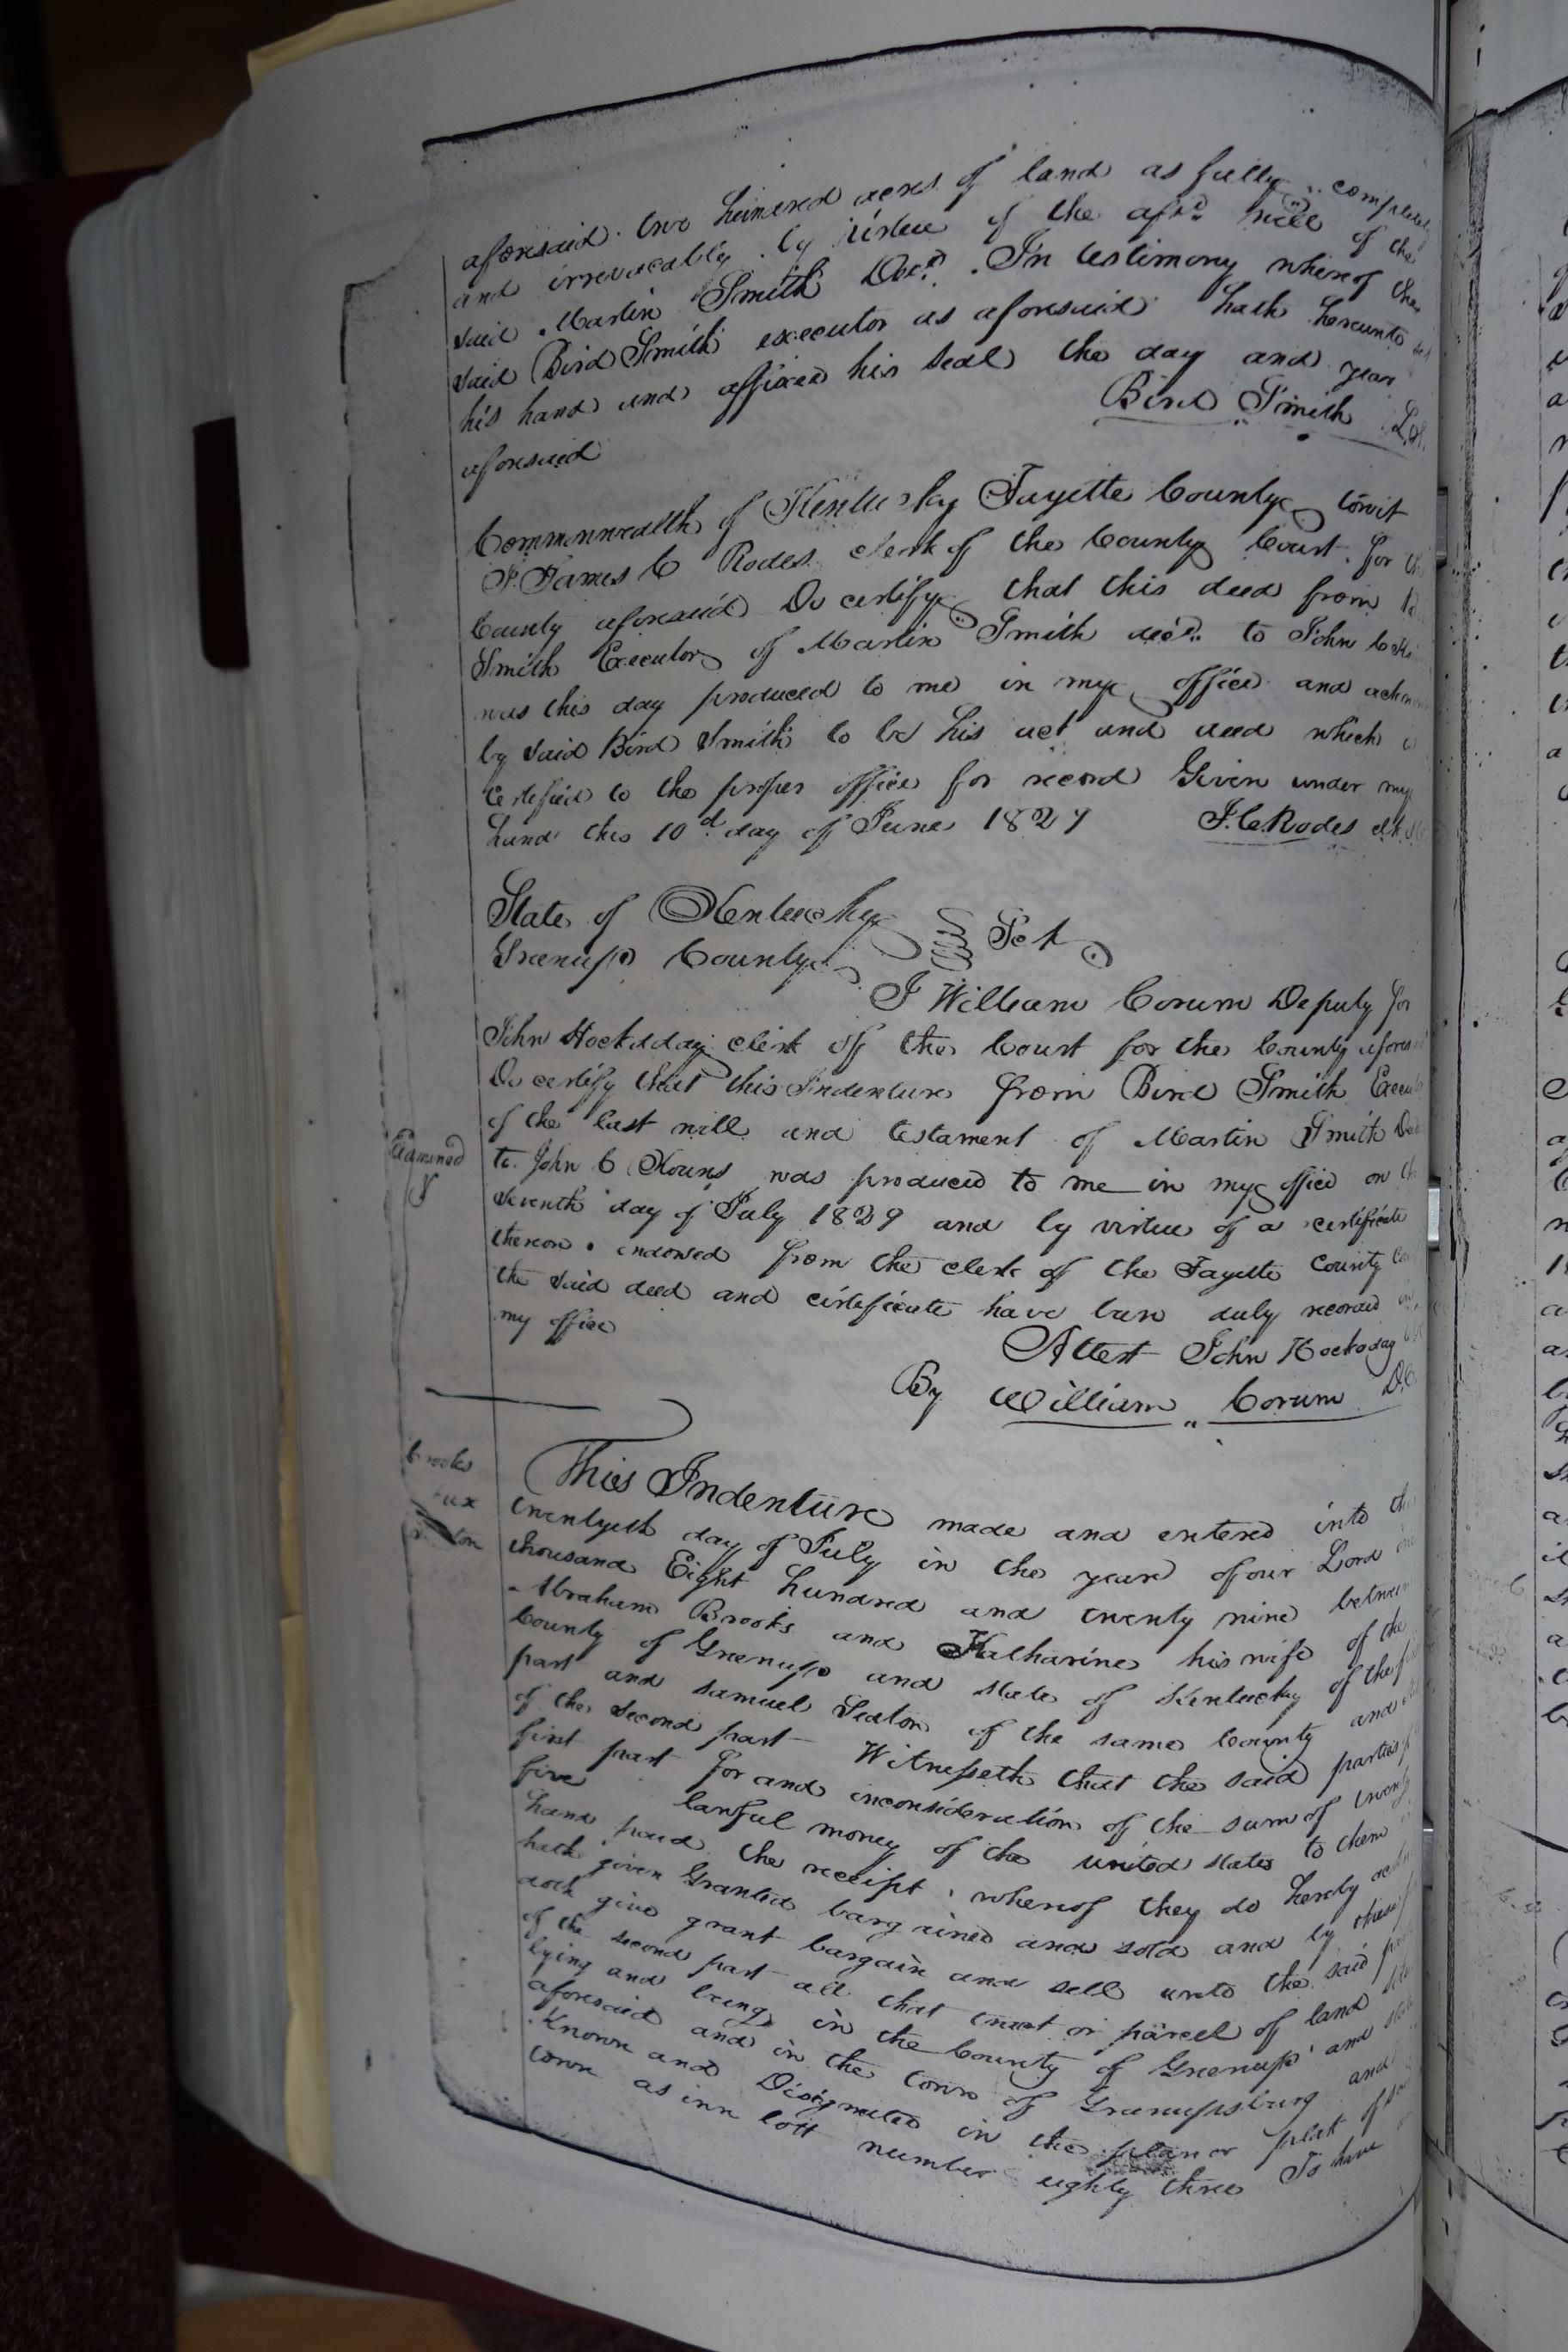 aforesaid two hundred acres of land as fully completely
and irrevocably by virtue of the afsd will of the
said Martin Smith Decd. In testimony whereof the
said Bird Smith executor as aforesaid hath hereunto set
his hand and affixed his seal the day and year
aforesaid
Bird Smith
Commonwealth of Kentucky Fayette County towit
I James C Rodes clerk of the County Court for the
County aforesaid Do certify that this deed from
Smith Executor of Martin Smith decd. to John C
was this day produced to me in my office and
by said Bird Smith to be his act and deed which
certified to the proper office for record Given under my
hand this 10d day of June 1829 J. C. Rodes clk
State of Kentucky
Greenup County Sct
I William Corum Deputy for
John Hockaday clerk of the Court for the County
Do certify that this Indenture from Bird Smith
of the last will and testament of Martin Smith
Examined
to John C Kouns was produced to me in my office on
seventh day of July 1829 and by virtue of a certificate
thereon indorsed from the clerk of the Fayette County
the said deed and certificate have been duly record
my office
Attest John Hockaday
By William Corum D.C.
Brooks
ux
This Indenture made and entered into
twentyeth day of July in the year of our Lord
thousand Eight hundred and twenty nine between
Abraham Brooks and Katharine his wife of the
County of Greenup and state of Kentucky of the
part and Samuel Seaton of the same County and
of the second part Witnesseth that the said parties
first part for and inconsideration of the sum of
five lawful money of the united states to them
hand paid the receipt whereof they do hereby
hath given Granted bargained and sold and by these
doth give grant bargain and sell unto the said
of the second part all that tract or parcel of land
lying and being in the County of Greenup and
aforesaid and in the town of Greenupsburg and
Known and Designated in the plan or plat of
town as inn lott number eighty three To have